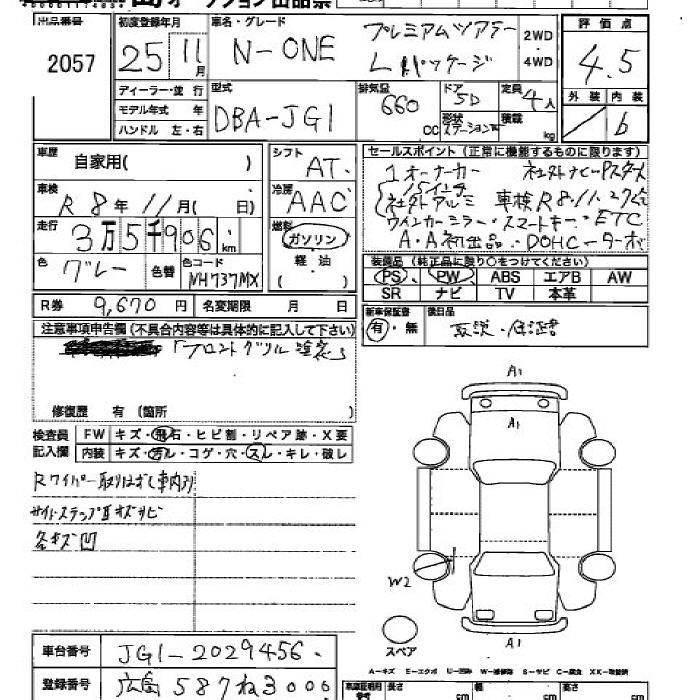 オークション出品票
出品番号 2057
初度登録年月 25 11月
車名・グレード N-ONE プレミアムツアラー Lパッケージ
2WD ・ 4WD
評価点 4.5
外装 内装 b
ディーラー・並行
モデル年式 年
ハンドル 左・右
型式 DBA-JG1
排気量 660 CC
ドア 5D
形状 ステーション
定員 4人
積載 kg
車歴 自家用( )
車検 R8年11月( 日)
走行 3万5千906km
色 グレー 色替 色コード NH737MX
シフト AT
冷房 AAC
燃料 ガソリン ・ 軽油 ・ ( )
セールスポイント(正常に機能するものに限ります)
1オーナーカー 社外ナビ
15インチ
社外アルミ 車検R8.11.27迄
ウインカーミラー・スマートキー・ETC
A・A初出品・DOHCターボ
装備品(純正品に限り○をつけてください)
PS PW ABS エアB AW
SR ナビ TV 本革
新車保証書 有・無
後日品 取説・保証書
R券 9,670円 名変期限 月 日
注意事項申告欄(不具合内容等は具体的に記入して下さい)
「フロントグリル塗装」
修復歴 有(箇所
検査員記入欄
FW キズ・飛石・ヒビ割・リペア跡・X要
内装 キズ・汚レ・コゲ・穴・スレ・キレ・破レ
Rワイパー取りはずし(車内入)
サイドステップ下キズサビ
各キズ凹
A1
A1
W2
スペア
A1
A-キズ E-エクボ U-凹跡 W-補修跡 S-サビ C-腐食 XX-取替済
車台番号 JG1-2029456
登録番号 広島587ね3006
長さ cm 幅 cm 高さ cm